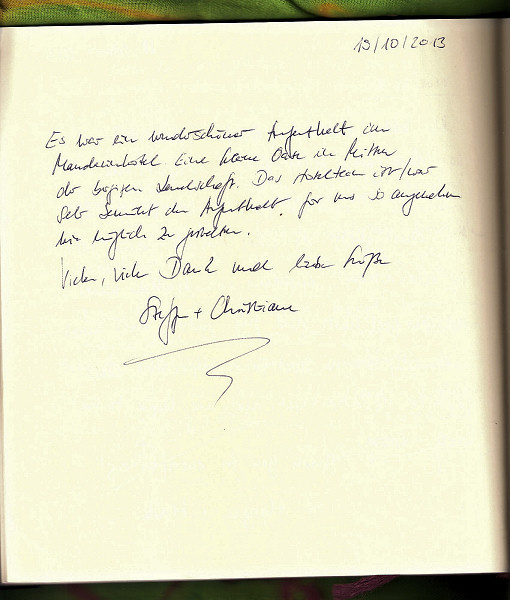 19/10/2013
Es war ein wunderschöner Aufenthalt im
Eine kleine Oase in Mitten
der bergigen Landschaft. Das Hotelteam ist/war
sehr bemüht den Aufenthalt für uns so angenehm
wie möglich zu gestalten.
Vielen, vielen Dank und liebe Grüße
Steffen + Christiane